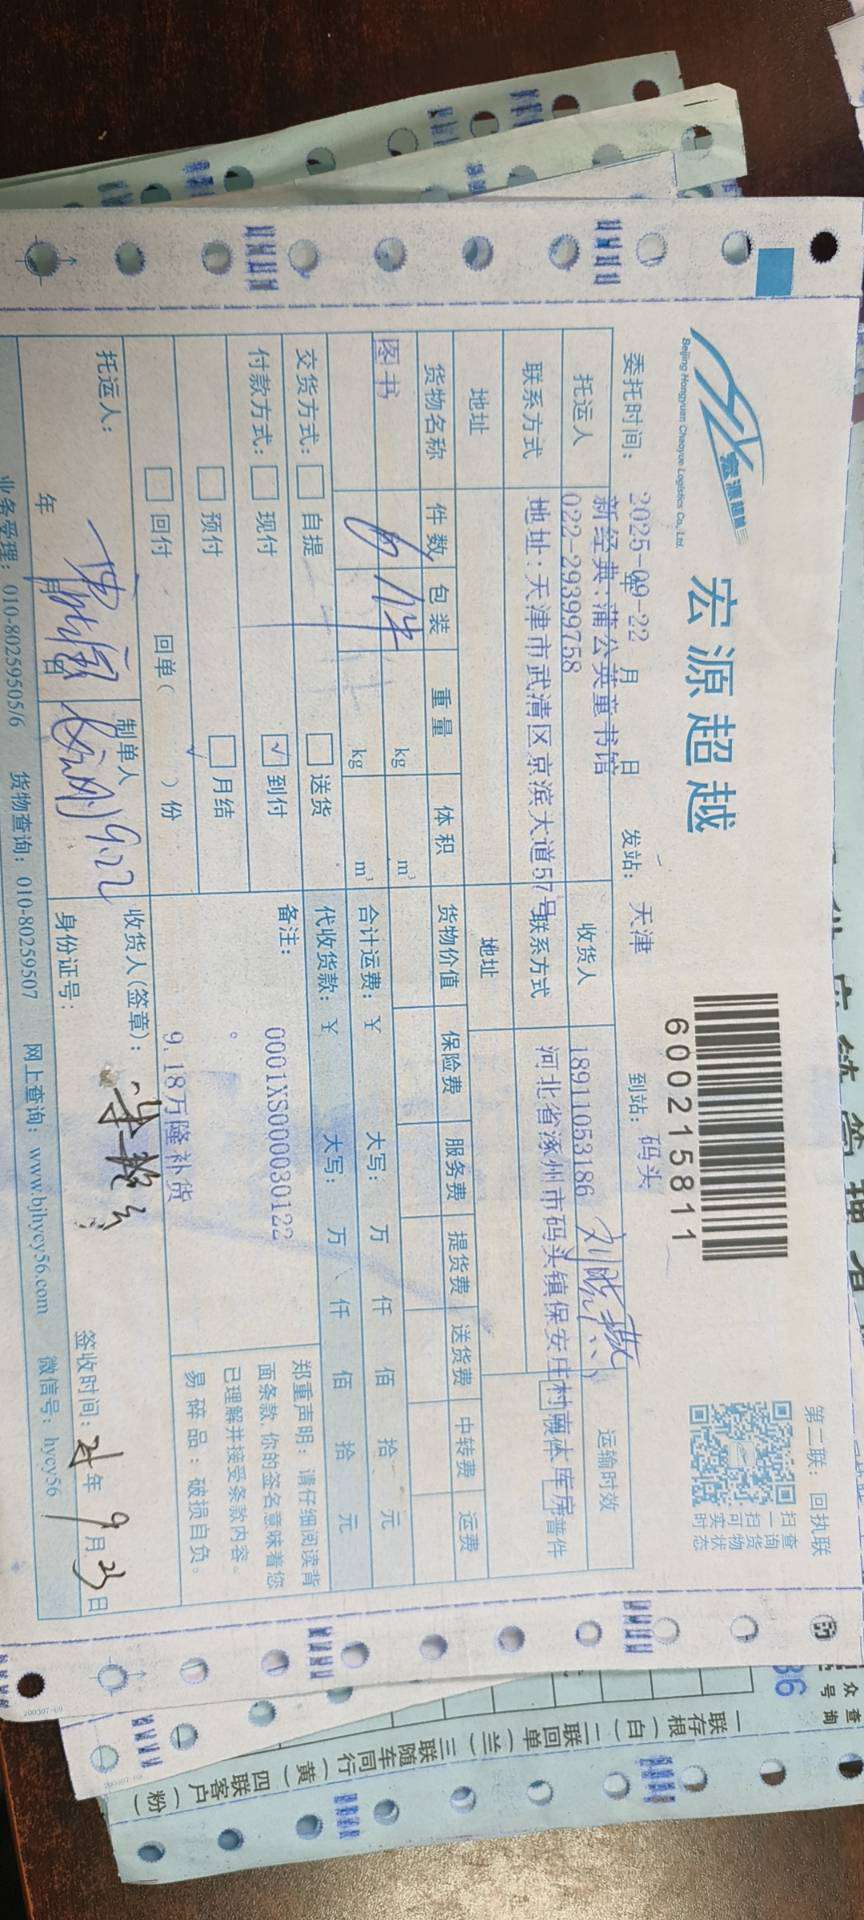 宏源超越
Beijing Hongyuan Chaoyue Logistics Co., Ltd.
宏源超越
600215811
第二联：回执联
扫一扫可实时
查询货物状态
委托时间：2025-09-22 年 月 日 发站：天津 到站：码头
托运人 新经典:蒲公英童书馆 收货人 18911053186 运输时效
联系方式 022-29399758 联系方式
地址：天津市武清区京滨大道57号 河北省涿州市码头镇保安庄村 库房 普件
地址 地址
货物名称 件数 包装 重量 体积 货物价值 保险费 服务费 提货费 送货费 中转费 运费
图书 件 kg m³
kg m³
合计运费：¥ 大写： 万 仟 佰 拾 元
交货方式：自提 送货 代收货款：¥ 大写： 万 仟 佰 拾 元
付款方式：现付 √到付
预付 月结
回付 回单（ ）份
备注：0001XS0000030122
。
9.18万隆补货
郑重声明：请仔细阅读背
面条款 你的签名意味着您
已理解并接受条款内容。
易碎品：破损自负。
托运人： 年 月 日
制单人 9.22
收货人(签章)：
身份证号：
签收时间： 年 9月23日
业务受理：010-80259505/6 货物查询：010-80259507 网上查询：www.bjhycy56.com 微信号：hycy56
一联存根（白）二联回单（兰）三联随车同行（黄）四联客户（粉）